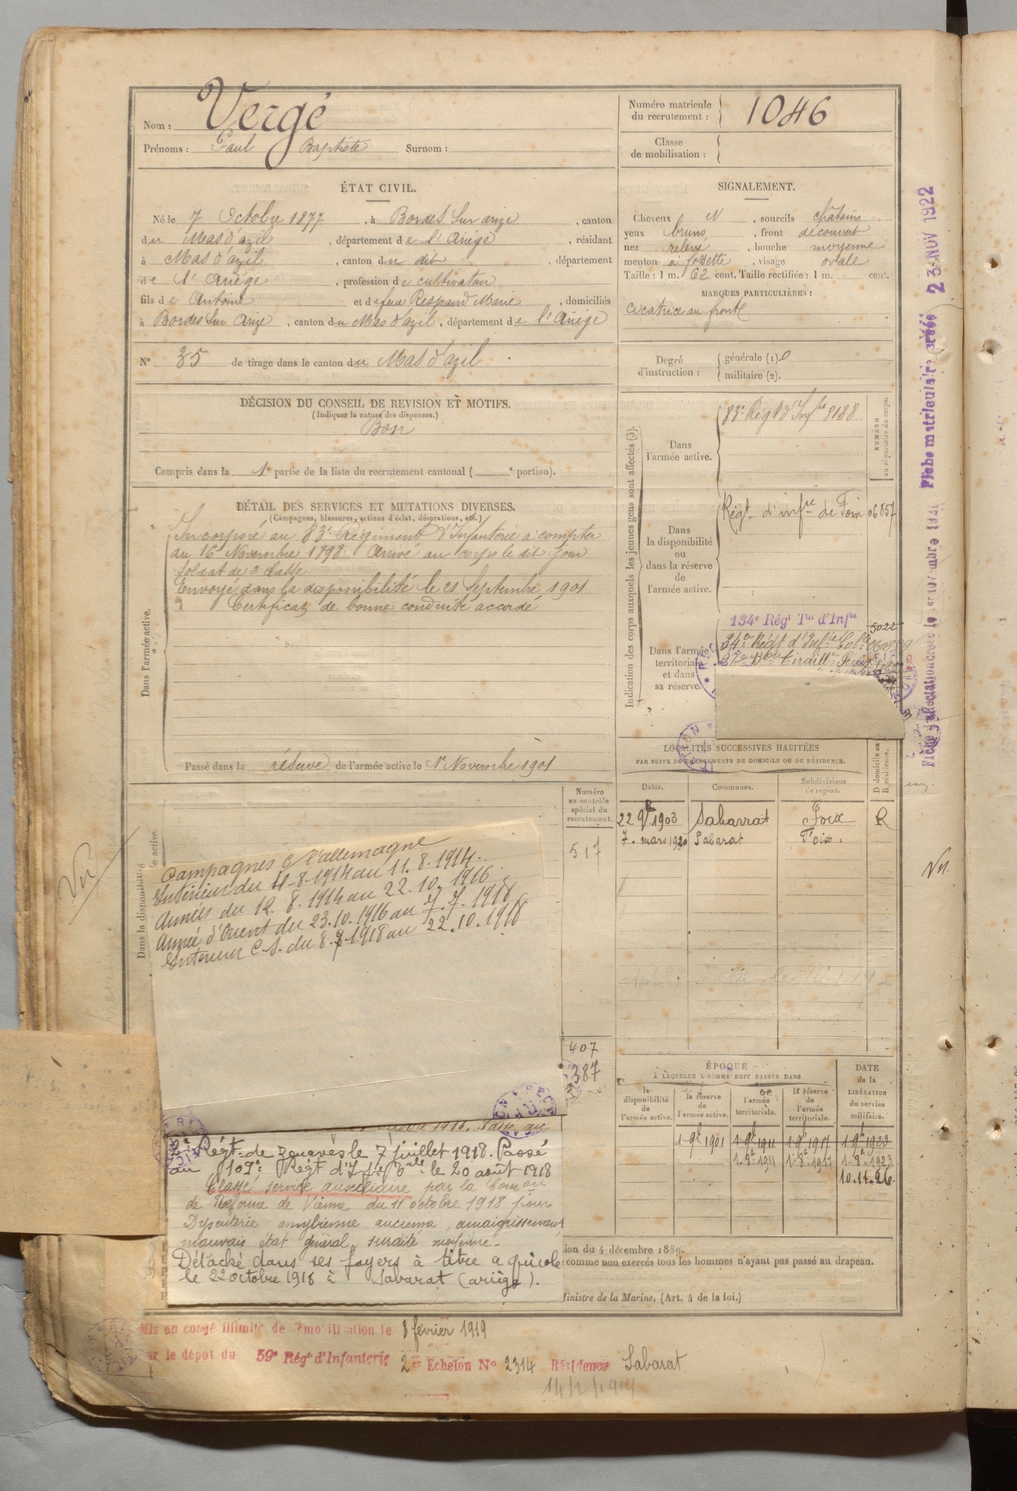 Nom : Vergé
Prénoms : Paul Baptiste Surnom :
Numéro matricule du recrutement : 1046
Classe de mobilisation :
ÉTAT CIVIL.
Né le 7 Octobre 1877, à Bordes Sur arize, canton
du Mas d'azil, département de l'Ariège, résidant
à Mas d'azil, canton du dit, département
de l'Ariège, profession de cultivateur
fils de Antoine et de feue Respaud Marie, domiciliés
à Bordes Sur Arize, canton du Mas d'azil, département de l'Ariège
N° 35 de tirage dans le canton du Mas d'azil.
SIGNALEMENT.
Cheveux N, sourcils châtains
yeux bruns, front découvert
nez relevé, bouche moyenne
menton à fossette, visage ovale
Taille : 1 m. 62 cent. Taille rectifiée : 1 m. cent.
MARQUES PARTICULIÈRES :
cicatrice au front
Degré d'instruction : générale (1). 0
militaire (2).
DÉCISION DU CONSEIL DE REVISION ET MOTIFS.
(Indiquer la nature des dispenses.)
Bon
Compris dans la 1e partie de la liste du recrutement cantonal ( e portion).
DÉTAIL DES SERVICES ET MUTATIONS DIVERSES.
(Campagnes, blessures, actions d'éclat, décorations, etc.)
Dans l'armée active.
Incorporé au 83e Régiment d'Infanterie à compter
du 16 Novembre 1898. Arrivé au corps le dit jour
soldat de 2e classe
Envoyé dans la disponibilité le 21 Septembre 1901
Certificat de bonne conduite accordé
Passé dans la réserve de l'armée active le 1er Novembre 1901
Indication des corps auxquels les jeunes gens sont affectés (3).
NUMÉRO au répertoire du corps.
Dans l'armée active.
83e Régt d'Infie 8188
Dans la disponibilité ou dans la réserve de l'armée active.
Régt d'infie de Foix 06557
Dans l'armée territoriale et dans sa réserve.
134e Régt Tal d'Infie
5022
34e Régt d'Infie Colle
LOCALITÉS SUCCESSIVES HABITÉES
PAR SUITE DE CHANGEMENTS DE DOMICILE OU DE RÉSIDENCE.
Dates. Communes. Subdivisions de région. D domicile ou R résidence.
22 9bre 1903 Sabarrat Foix R
7 mars 1920 Sabarat Foix.
Numéro au contrôle spécial du recrutement.
517
407
387
Dans la disponibilité
Campagnes c/ l'allemagne
Intérieur du 4-8-1914 au 11.8.1914.
Armées du 12.8.1914 au 22.10.1916.
Armée d'Orient du 23.10.1916 au 7.7.1918
Intérieur C.S. du 8.7.1918 au 22.10.1918
2e Régt de zouaves le 7 juillet 1918. Passé
au 107e Régt d'Infie le 20 août 1918
Classé service auxiliaire par la Comon
de Réforme de Vienne du 11 octobre 1918 pour
Dysenterie amybienne ancienne, amaigrissement
mauvais état général, surdité moyenne.
Détaché dans ses foyers à titre agricole
le 22 octobre 1918 à Sabarat (ariège).
ÉPOQUE
À LAQUELLE L'HOMME DOIT PASSER DANS
la disponibilité de l'armée active.
la réserve de l'armée active.
l'armée territoriale.
la réserve de l'armée territoriale.
DATE de la LIBÉRATION du service militaire.
1-9bre 1901 1-9bre 1911 1-9bre 1917 1-9bre 1923
1-8bre 1911 1-8bre 1917 1-8bre 1923
10.11.26.
ion du 4 décembre 1889.
comme non exercés tous les hommes n'ayant pas passé au drapeau.
inistre de la Marine. (Art. 4 de la loi.)
Mis en congé illimité de démobilisation le 8 février 1919
le dépôt du 59e Régt d'Infanterie 2e Echelon N° 2314 Résidence Sabarat
Vu
Vu
23 NOV 1922